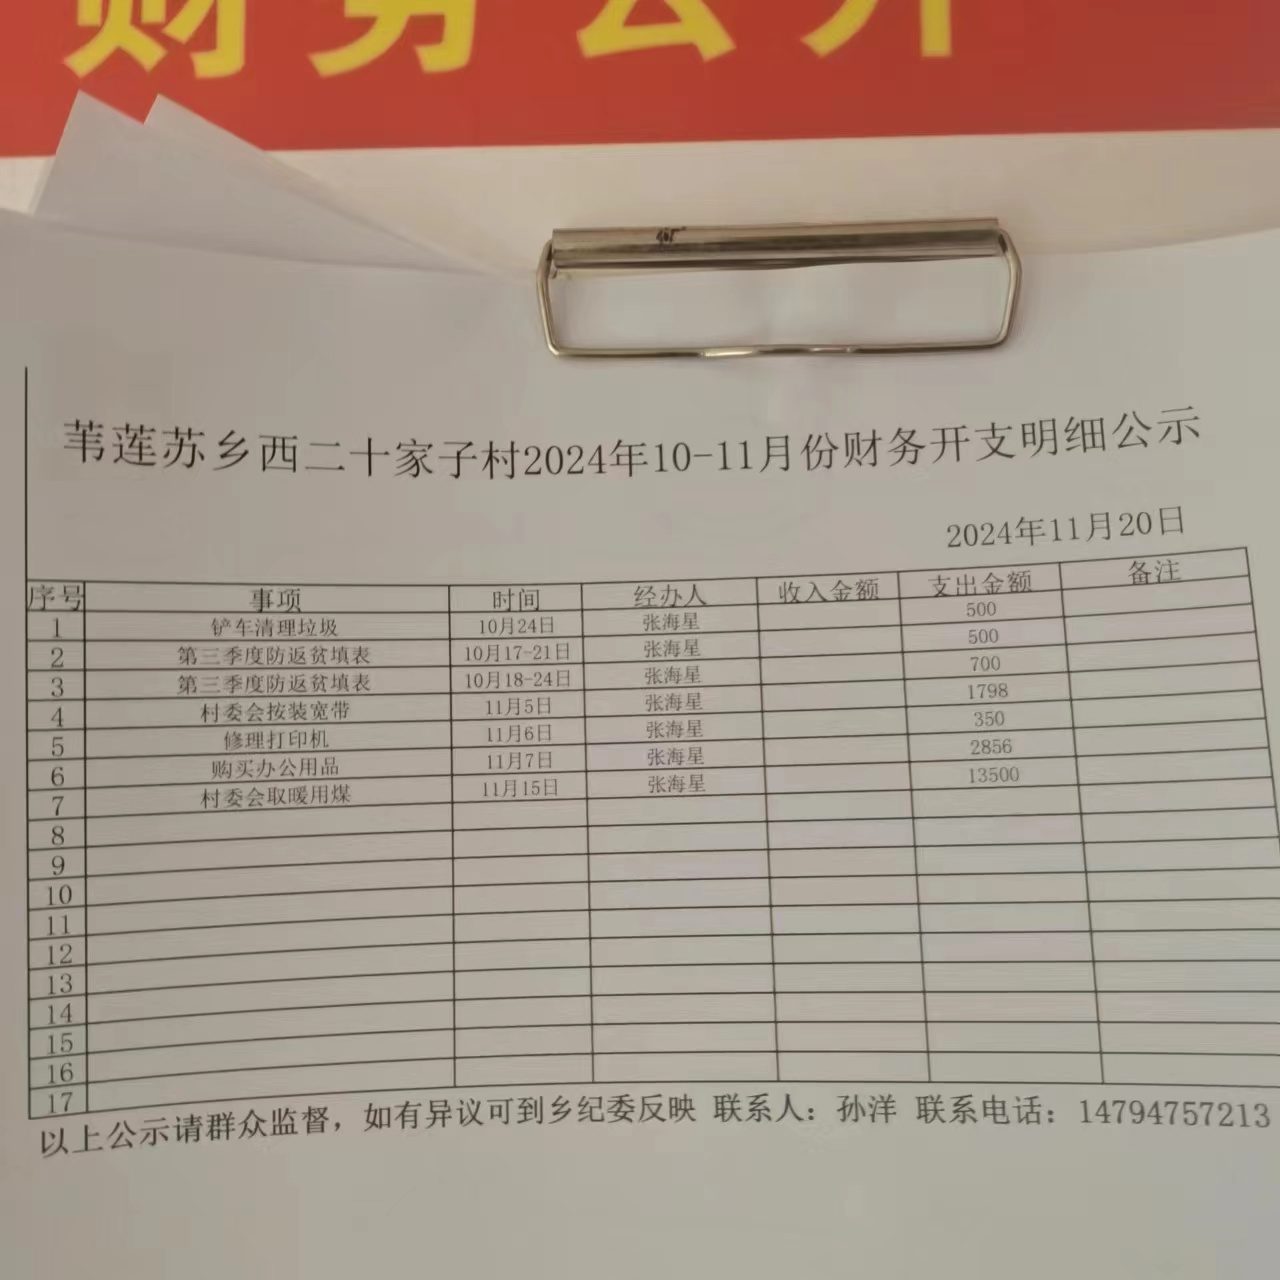 财务公开
苇莲苏乡西二十家子村2024年10-11月份财务开支明细公示
2024年11月20日
序号 事项 时间 经办人 收入金额 支出金额 备注
1 铲车清理垃圾 10月24日 张海星 500
2 第三季度防返贫填表 10月17-21日 张海星 500
3 第三季度防返贫填表 10月18-24日 张海星 700
4 村委会按装宽带 11月5日 张海星 1798
5 修理打印机 11月6日 张海星 350
6 购买办公用品 11月7日 张海星 2856
7 村委会取暖用煤 11月15日 张海星 13500
8
9
10
11
12
13
14
15
16
17
以上公示请群众监督，如有异议可到乡纪委反映 联系人：孙洋 联系电话：14794757213